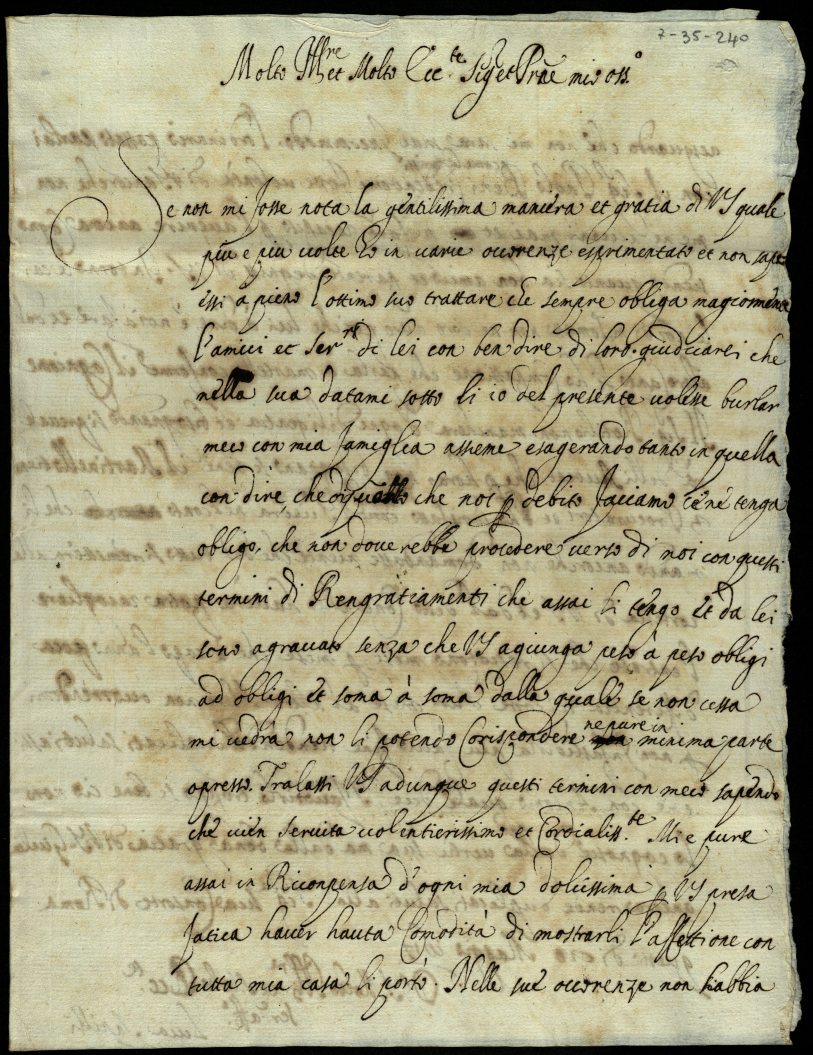 7-35-240
Molto Ill.re et Molto Ecc.te Sig.r et Prõe mio oss.o
Se non mi fosse nota la gentilissima maniera et gratia di VS quale
piu e piu volte ho in varie occorenze esprimentato et non sape
essi a pieno l'ottimo suo trattare che sempre obliga magiormente
l'amici et ser.ri di lei con ben dire di loro. giudiciarei che
nella sua datami sotto li 10 del presente volesse burlar
meco con mia famiglia assieme esagerando tanto in quella
con dire, che di quello che noi p debito facciamo ce nè tenga
obligo, che non doverebbe procedere verso di noi con questi
termini di Rengratiamenti che assai li tengo et da lei
sono agravato senza che VS agiunga peso à peso obligi
ad obligi et soma à soma dalla quale se non cessa
mi vedrà non li potendo Corispondere ne pure in minima parte
opresso. Tralassi VS adunque questi termini con meco sapendo
che vien servita volentierissimo et Cordialiss.te Mi e pure
assai in Riconpensa d'ogni mia dolcissima p VS presa
fatica haver hauta Comodità di mostrarli l'affettione con
tutta mia casa li porto. Nelle sue occorenze non habbia